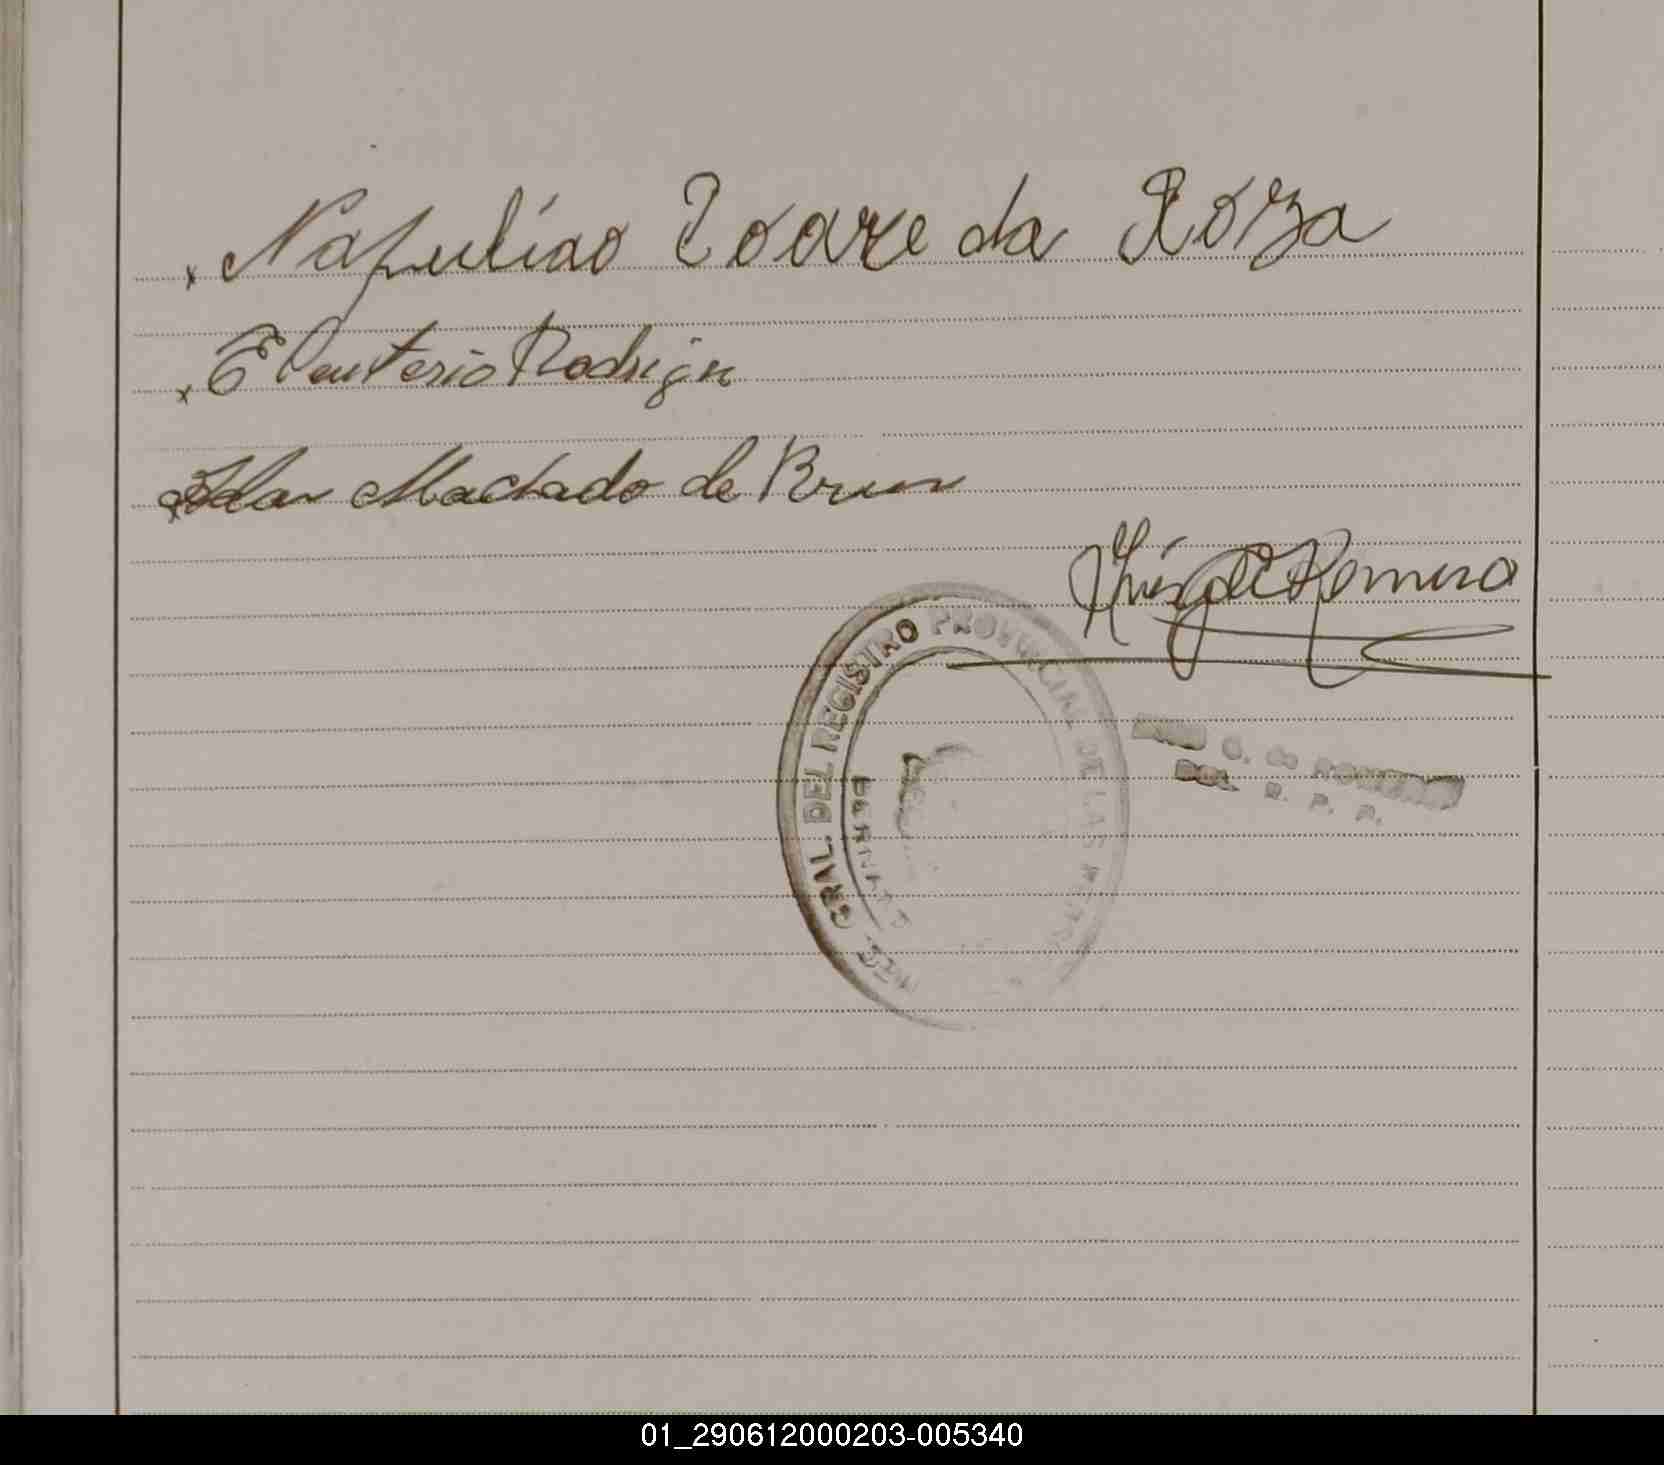 x Napulião Soare da Roza
x Eleuterio Rodrigu
x Ilda Machado de Brun
Romero
GRAL. DEL REGISTRO PROVINCIAL DE LAS
G. de ROMERO
R. P. P.
01_290612000203-005340